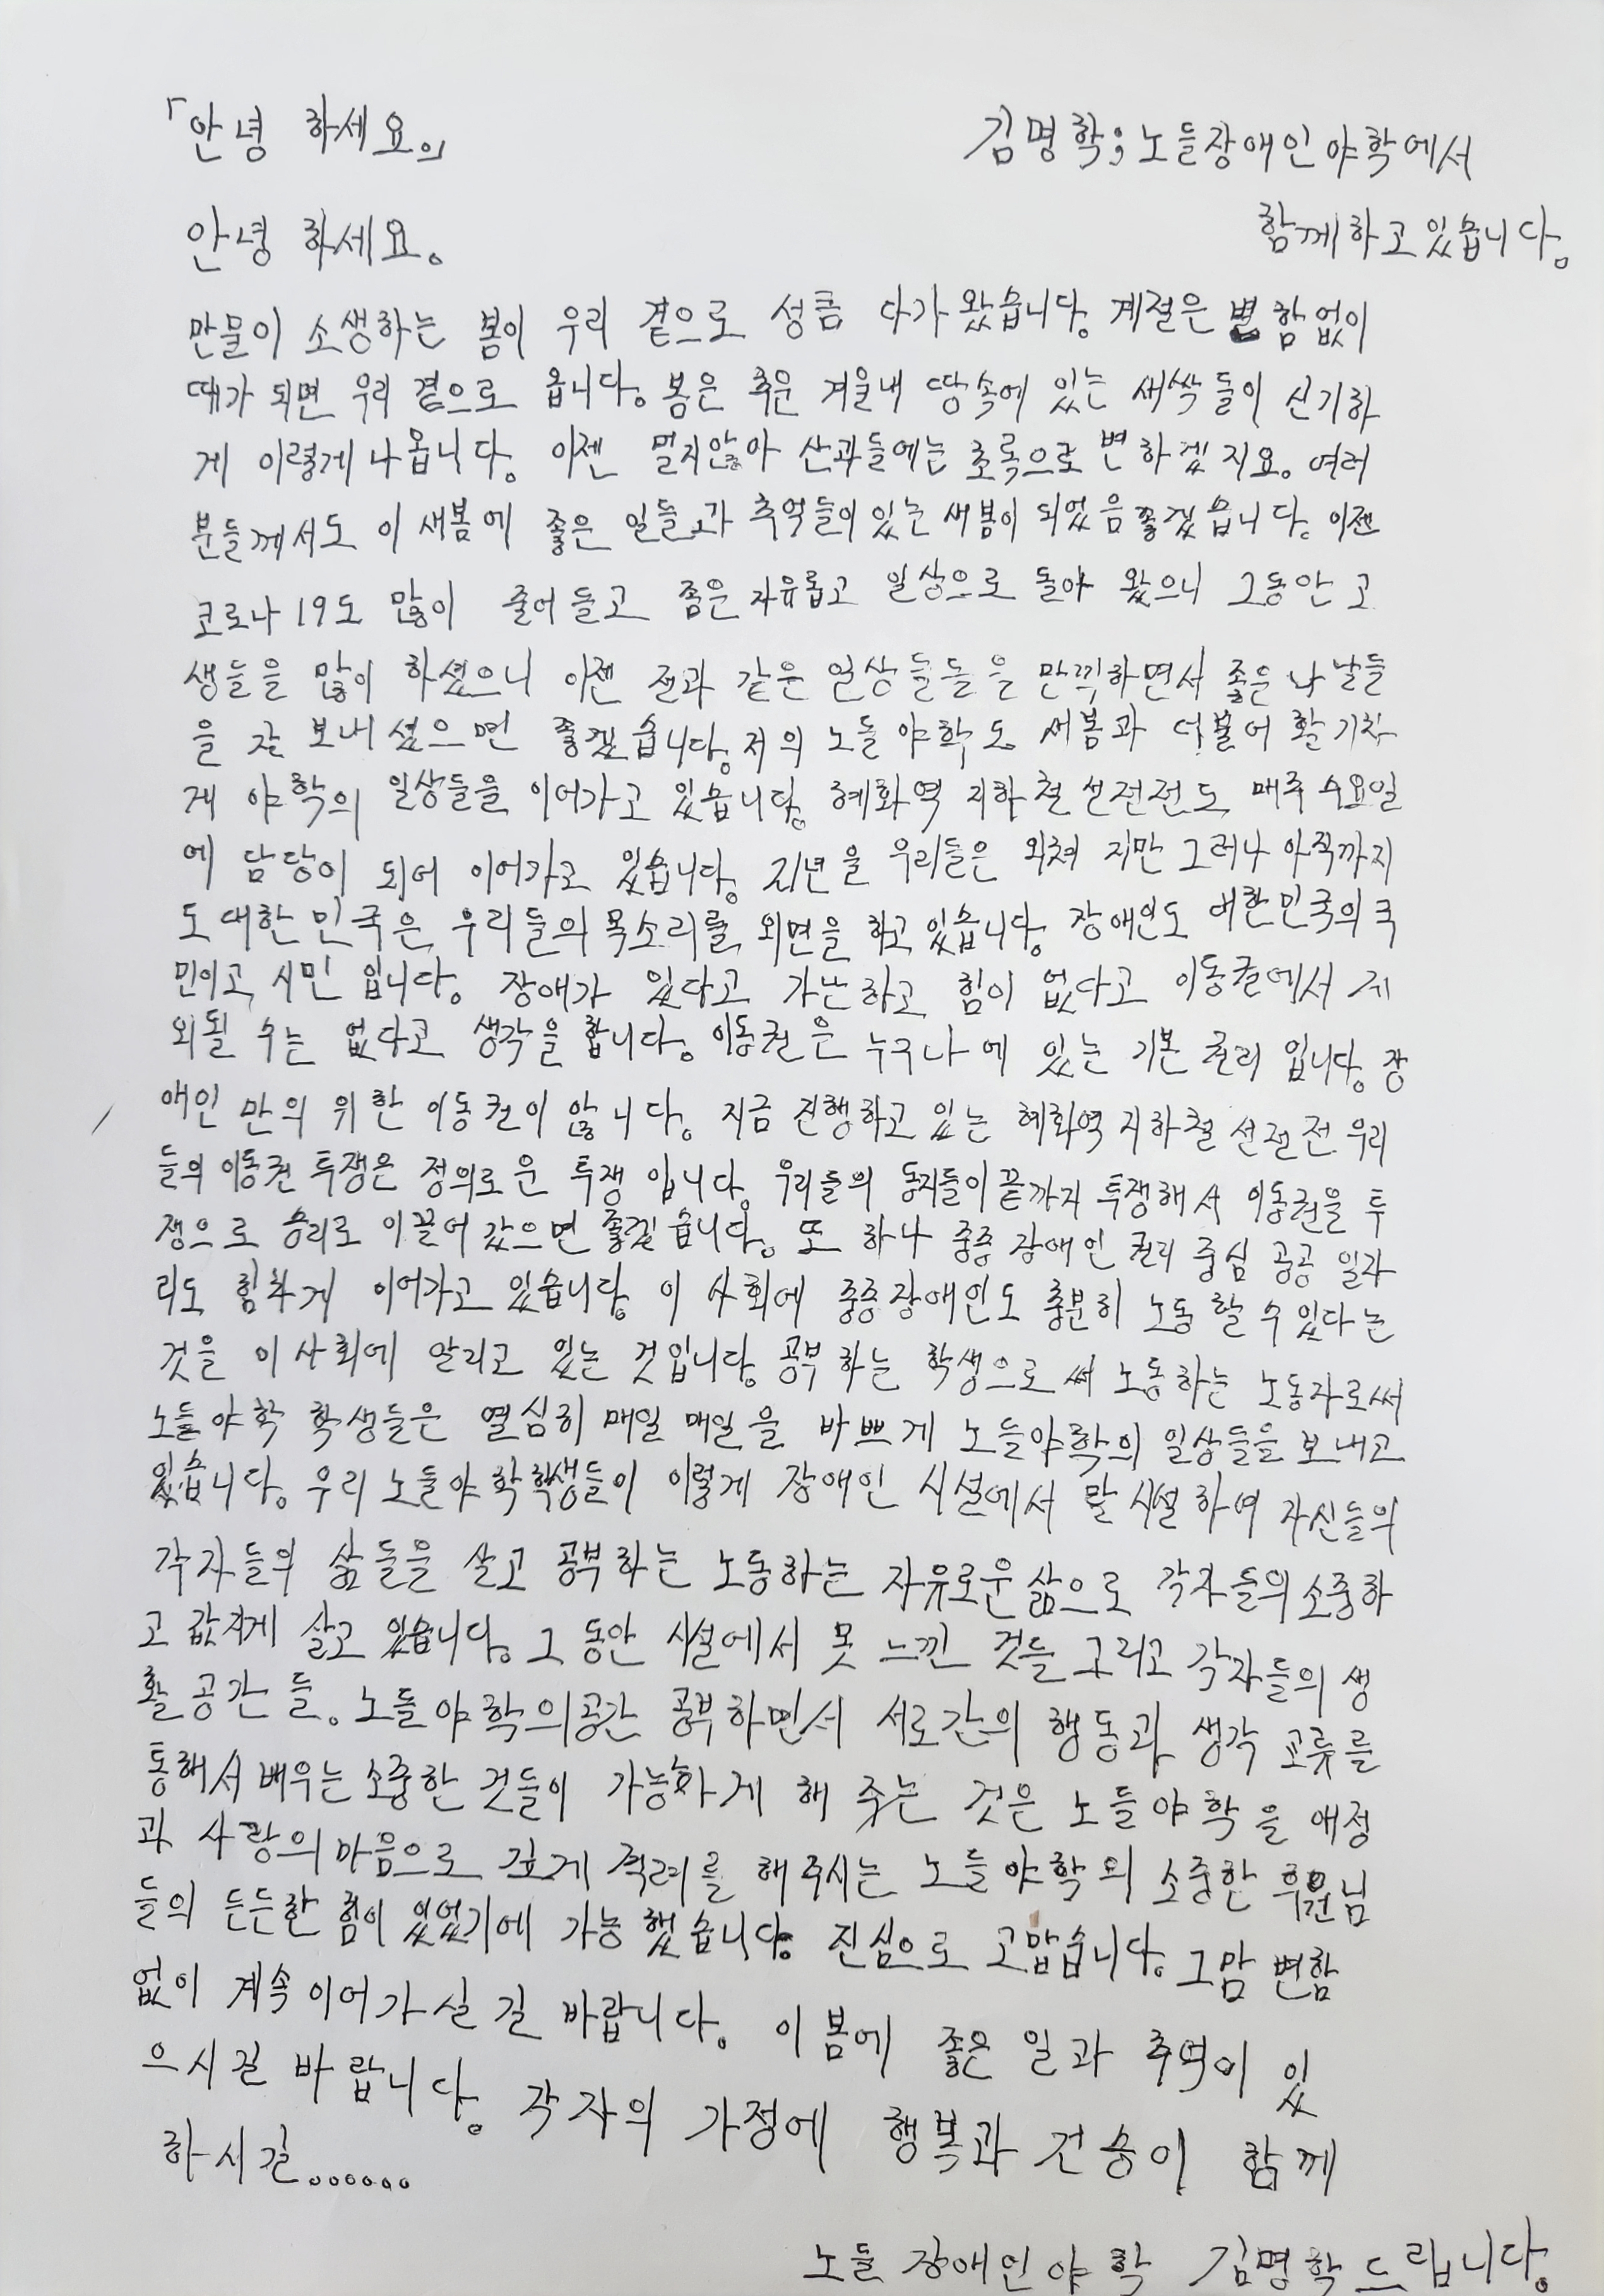 「안녕 하세요。」
김명학; 노들장애인야학에서
함께하고있습니다。
안녕 하세요。
만물이 소생하는 봄이 우리 곁으로 성큼 다가왔습니다。 계절은 변함없이
때가 되면 우리 곁으로 옵니다。 봄은 추운 겨울내 땅속에 있는 새싹들이 신기하
게 이렇게 나옵니다。 이젠 멀지않아 산과들에는 초록으로 변하겠지요。 여러
분들께서도 이 새봄에 좋은 일들과 추억들이 있는 새봄이 되었음 좋겠습니다。 이젠
코로나19도 많이 줄어들고 좀은 자유롭고 일상으로 돌아 왔으니 그동안 고
생들을 많이 하셨으니 이젠 전과 같은 일상들들을 만끽하면서 좋은 나날들
을 잘 보내셨으면 좋겠습니다。 저의 노들야학도 새봄과 더불어 활기차
게 야학의 일상들을 이어가고 있습니다。 혜화역 지하철 선전전도 매주 수요일
에 담당이 되어 이어가고 있습니다。 지년을 우리들은 외쳐 지만 그러나 아직까지
도 대한민국은 우리들의 목소리를 외면을 하고 있습니다。 장애인도 대한민국의 국
민이고 시민 입니다。 장애가 있다고 가난하고 힘이 없다고 이동권에서 제
외될 수는 없다고 생각을 합니다。 이동권은 누구나에 있는 기본 권리 입니다。 장
애인 만의 위한 이동권이 않니다。 지금 진행하고 있는 혜화역 지하철 선전전 우리
들의 이동권 투쟁은 정의로운 투쟁 입니다。 우리들의 동지들이 끝까지 투쟁해서 이동권을 투
쟁으로 승리로 이끌어 갔으면 좋겠습니다。 또 하나 중증 장애인 권리 중심 공공 일자
리도 힘차게 이어가고 있습니다。 이 사회에 중증장애인도 충분히 노동 할 수 있다는
것을 이 사회에 알리고 있는 것입니다。 공부하는 학생으로써 노동하는 노동자로써
노들야학 학생들은 열심히 매일 매일을 바쁘게 노들야학의 일상들을 보내고
있습니다。 우리 노들야학학생들이 이렇게 장애인 시설에서 탈시설하여 자신들의
각자들의 삶들을 살고 공부하는 노동하는 자유로운 삶으로 각자들의 소중하
고 값지게 살고 있습니다。 그 동안 시설에서 못 느낀 것들 그리고 각자들의 생
활 공간 들。 노들야학의공간 공부하면서 서로간의 행동과 생각 교류를
통해서 배우는 소중한 것들이 가능하게 해 주는 것은 노들야학을 애정
과 사랑의 마음으로 깊게 격려를 해주시는 노들야학의 소중한 후원님
들의 든든한 힘이 있었기에 가능했습니다。 진심으로 고맙습니다。 그맘 변함
없이 계속 이어가실 길 바랍니다。 이 봄에 좋은 일과 추억이 있
으시길 바랍니다。 각자의 가정에 행복과 건승이 함께
하시길。。。。。。
노들 장애인야학 김명학드립니다。